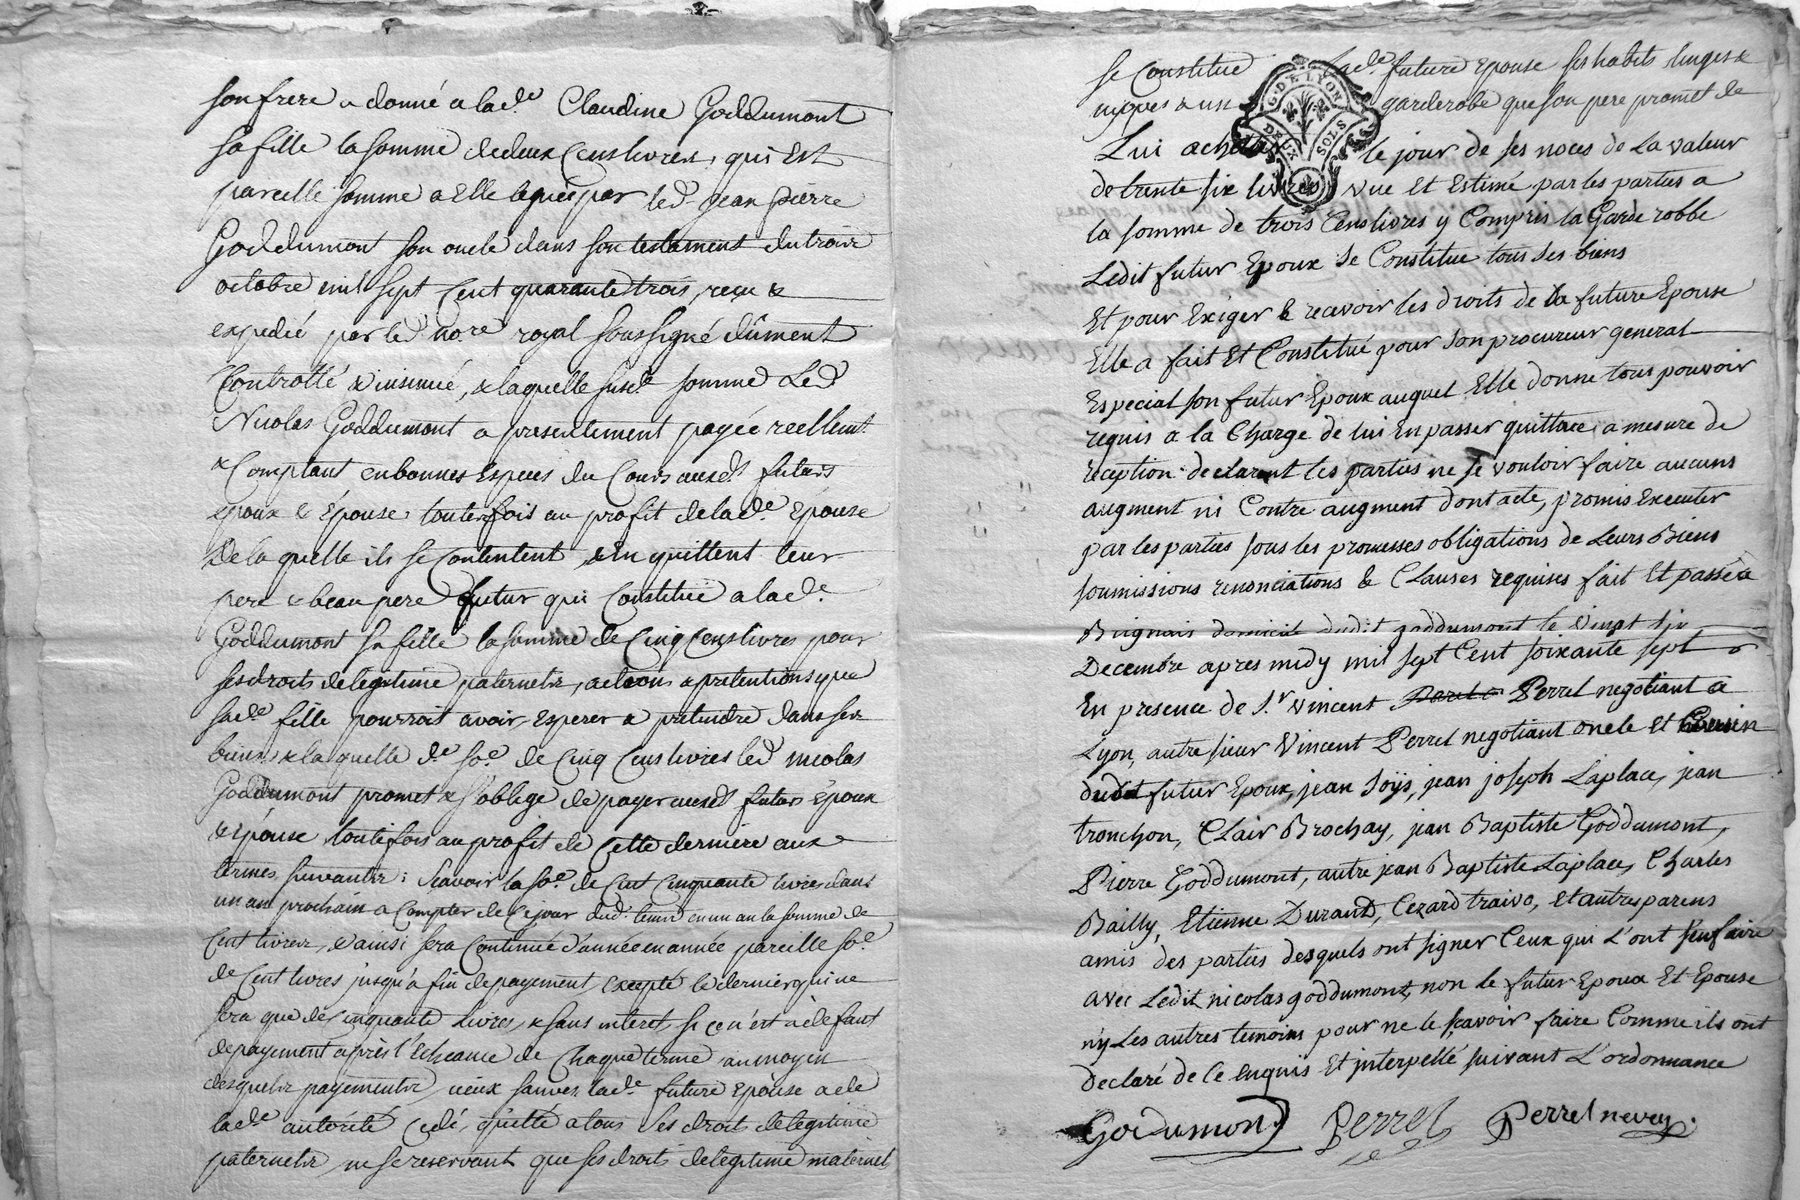 son frere a donné a lad.e Claudine Goddumont
sa fille la somme de deux cens livres, qui est
pareille somme a elle leguée par led. jean pierre
Goddumont son oncle dans son testament du trois
octobre mil sept cent quarante trois, reçu &
expedié par le d. no.re royal soussigné dûment
Controllé & insinué, & laquelle susd.e somme Led
Nicolas Goddumont a presentement payée reellem.t
& Comptant en bonnes Especes du Cours auxd. futurs
epoux & épouse, toutesfois au profit de lad.e épouse
de laquelle ils se Contentent & en quittent leur
pere & beau pere futur qui Constitue a lad.e
Goddumont sa fille la somme de Cinq cens livres pour
ses droits de legitime paternels, actions & pretentions que
sad.e fille pourroit avoir, esperer & pretendre dans ses
biens, & laquelle d.e so.e de Cinq Cens livres led nicolas
Goddumont promet & s'oblige de payer auxd. futurs époux
& épouse toutefois au profit de Cette derniere aux
termes suivants: Scavoir la so.e de Cent Cinquante livres dans
un an prochain a Compter de Ce jour dud. tems en un an la somme de
Cent livres, & ainsi sera Continué d'année en année pareille so.e
de Cent livres jusqu'a fin de payement excepté le dernier qui ne
sera que de Cinquante livres, & sans interet, si ce n'est a defaut
de payement après l'Echeance de Chaque terme au moyen
desquels payements, ceux sauves, lad.e future Epouse a de
lad.e autorité Cedé, quitté a tous ses droits de legitime
paternels, ne se reservant que ses droits de legitime maternels
se Constitue lad.e future epouse ses habits linges &
nippes & une garderobe que son pere promet de
Lui acheter le jour de ses noces de La valeur
de trente six livres vue et Estimé par les parties a
la somme de trois Cens livres y Compris la Garde robbe
Ledit futur Epoux se Constitue tous ses biens
Et pour Exiger & recevoir les droits de la future Epouse
Elle a fait Et Constitué pour son procureur general
Especial son futur Epoux auquel Elle donne tous pouvoir
requis a la Charge de lui En passer quittance a mesure de
reception declarant les parties ne se vouloir faire aucuns
augment ni Contre augment dont acte, promis Executer
par les parties sous les promesses obligations de Leurs Biens
soumissions renonciations & Clauses requises fait Et passé a
Brignais domicile dudit goddumont le vingt six
Decembre apres midy mil sept Cent soixante sept
En presence de S.r Vincent Perrel negotiant a
Lyon, autre sieur Vincent Perrel negotiant oncle et Cousin
dudit futur Epoux, jean Joys, jean joseph Laplace, jean
tronchon, Clair Brochay, jean Baptiste Goddumont,
Pierre Goddumont, autre jean Baptiste Laplace, Charles
Bailly, Etienne Durand, Cezard traivo, et autres parens
amis des parties desquels ont signer Ceux qui L'ont seu faire
avec Ledit nicolas goddumont, non le futur Epoux Et Epouse
ny Les autres temoins pour ne le scavoir faire Comme ils ont
declaré de Ce enquis Et interpellé suivant L'ordonnance
Godumond Perrel Perrel neveu.
G. DE LYON
DEUX SOLS